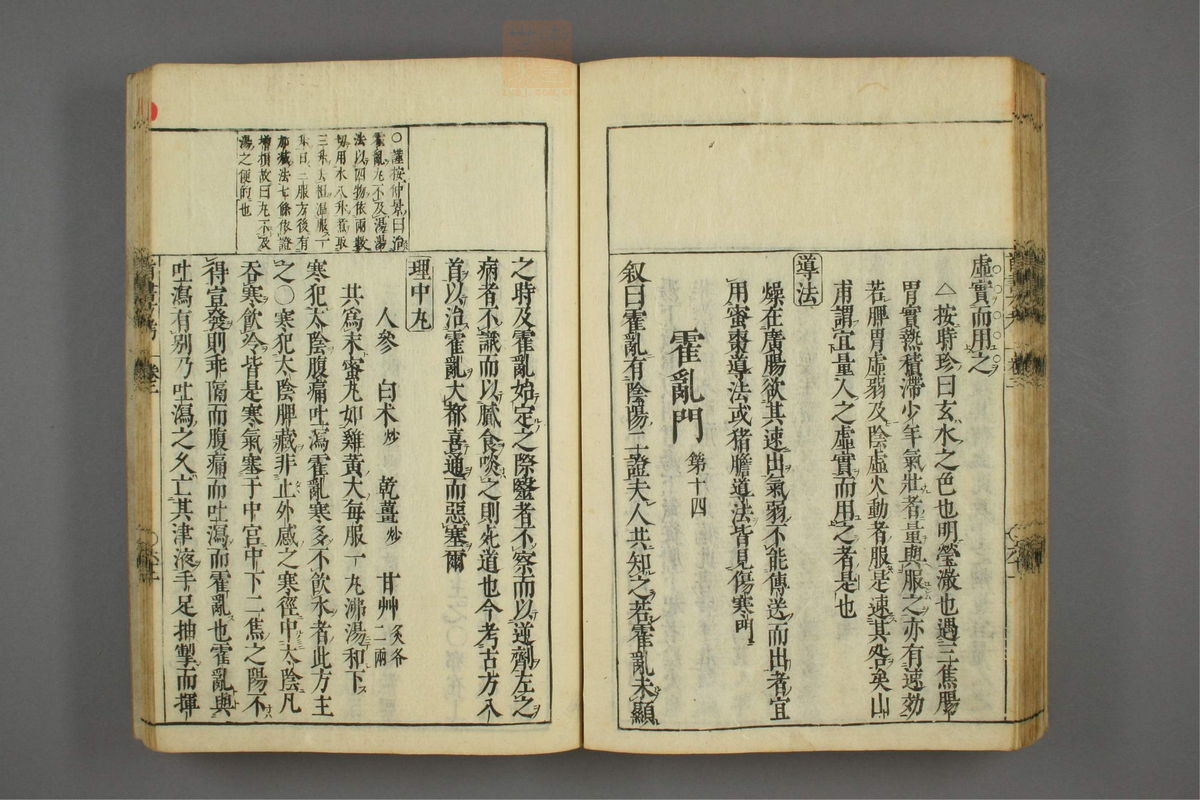 虛實而用之
△按時珍曰玄水之色也明瑩澈也過三焦腸
胃實熱積滯少年氣壯者量與服之亦有速効
若脾胃虛弱及陰虛火動者服是速其咎矣山
甫謂宜量人之虛實而用之者是也
導法
燥在廣腸欲其速出氣弱不能傳送而出者宜
用蜜棗導法或猪膽導法皆見傷寒門
霍亂門 第十四
叙曰霍亂有陰陽二證夫人共知之若霍亂未顯
之時及霍亂始定之際醫者不察而以逆劑左之
病者不識而以膩食啖之則死道也今考古方入
首以治霍亂大都喜通而惡塞爾
○謹按仲景曰治
霍亂丸不及湯湯
法以四物依兩數
切用水八升煮取
三升去柤溫服一
升日三服方後有
加藏法七條依證
增損故曰丸不及
湯之便的也
理中丸
人參 白朮炒 乾薑炒 甘艸炙各二兩
共爲末蜜丸如雞黃大每服一丸沸湯和下
寒犯太陰腹痛吐瀉霍亂寒多不飲水者此方主
之○寒犯太陰脾藏非止外感之寒徑中太陰凡
吞寒飲冷皆是寒氣塞于中宮中下二焦之陽不
得宣發則乖隔而腹痛而吐瀉而霍亂也霍亂與
吐瀉有別乃吐瀉之久亡其津液手足抽掣而揮